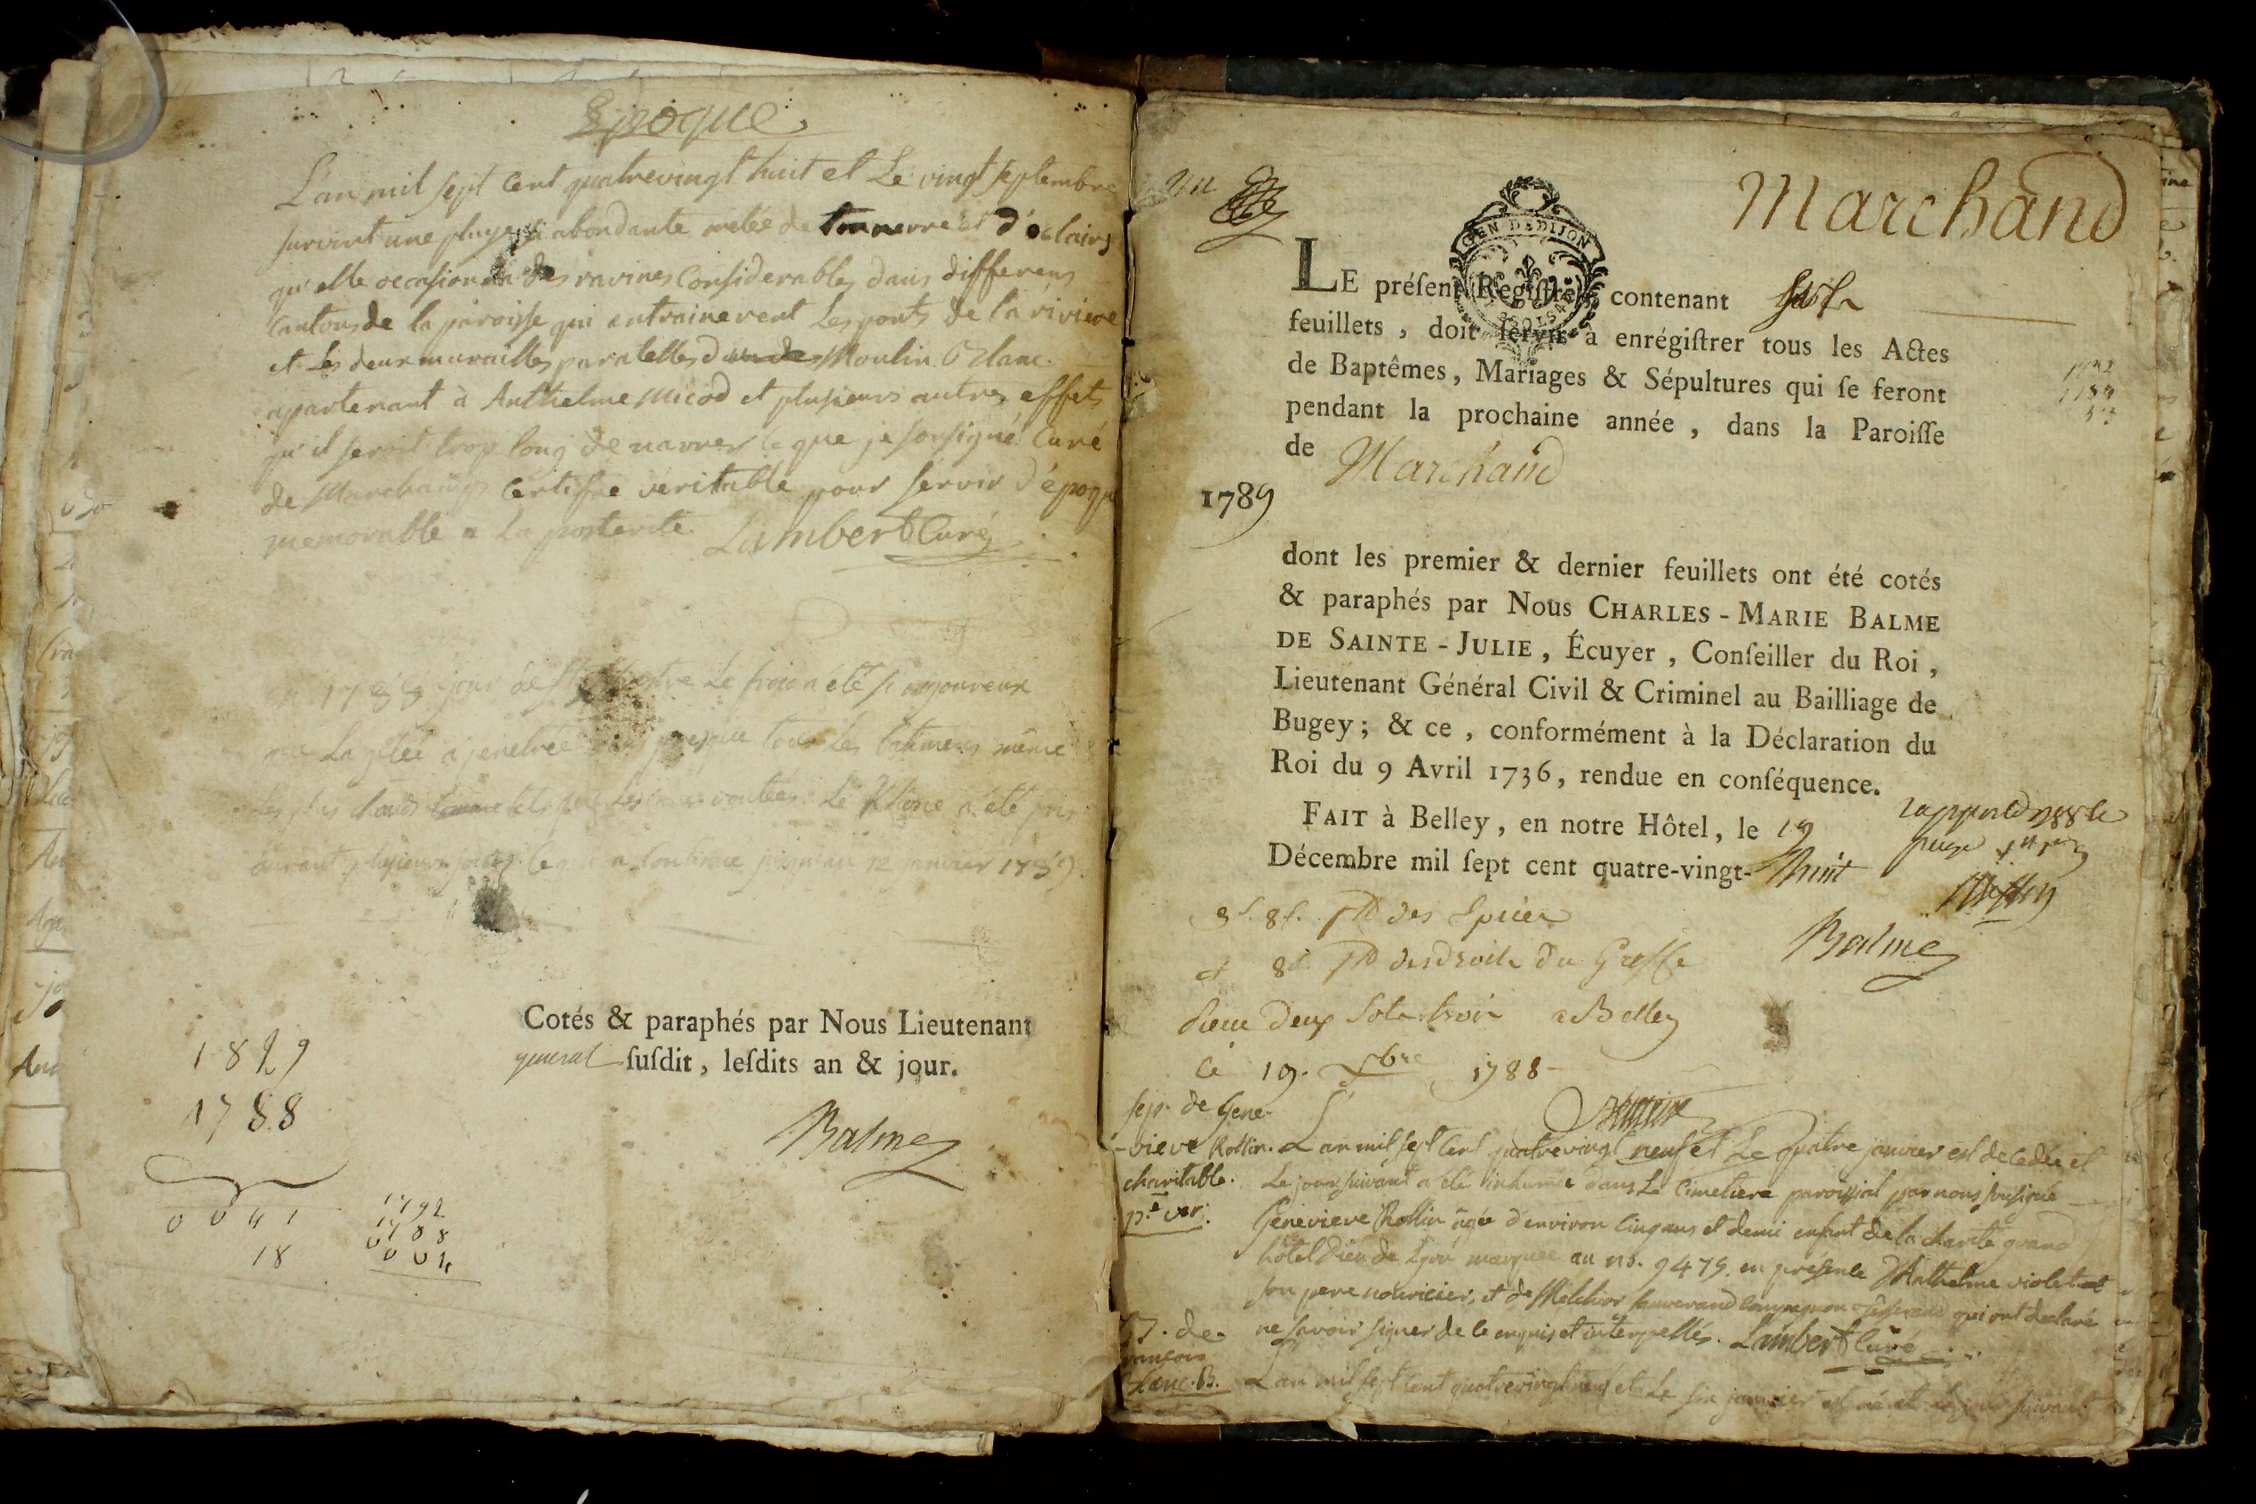 Epoque
L'an mil sept cent quatrevingt huit et Le vingt septembre
survint une pluye si abondante melée de tonnerre et d'eclairs
qu'elle occasionna des ravines Considerables dans differens
Cantons de la paroisse qui entrainerent Les ponts de la riviere
et Les deux murailles paralelles Moulin Blanc
apartenant à Anthelme Micod et plusieurs autres effets
qu'il seroit trop long de narrer ce que je soussigné Curé
de Marchand Certifie veritable pour servir d'époque
memorable a La posterité Lambert Curé
1788 jour de Le froid a été si rigoureux
que La gelée a penetrée presque tous Les batimens même
Les plus chauds voutées Le Rhône a été pris
durant plusieurs jours ce qui a continué jusqu'au 12 janvier 1789
Cotés & paraphés par Nous Lieutenant
general susdit, lesdits an & jour.
Balme
1829
1788
0041
18
1792
1788
0004
Marchand
GEN DE DIJON
LE préſent Regiſtre, contenant
feuillets, doit ſervir à enrégiſtrer tous les Actes
de Baptêmes, Mariages & Sépultures qui ſe feront
pendant la prochaine année, dans la Paroiſſe
de Marchand
1789
dont les premier & dernier feuillets ont été cotés
& paraphés par Nous CHARLES-MARIE BALME
DE SAINTE-JULIE, Écuyer, Conſeiller du Roi,
Lieutenant Général Civil & Criminel au Bailliage de
Bugey; & ce, conformément à la Déclaration du
Roi du 9 Avril 1736, rendue en conſéquence.
FAIT à Belley, en notre Hôtel, le 19
Décembre mil ſept cent quatre-vingt-huit
Balme
8 s. pd des Epices
et 8 s. pd des droits du Greffe
deux sols trois a Belley
Ce 19. Xbre 1788
sep. de Gene-
-vieve Rollin.
charitable.
L'an mil sept cent quatrevingt neuf et Le quatre janvier est decedée et
Le jour suivant a été inhumée dans Le Cimetiere paroissial par nous soussigné
Genevieve Rollin agée d'environ Cinq ans et demi enfant de la charité grand
hôtel Dieu de Lyon marquée au no. 9475. en présence d'Anthelme violet
son pere nouricier, et de Melchior qui ont declaré
ne savoir signer de ce enquis et interpellés. Lambert Curé
L'an mil sept cent quatrevingt neuf et Le six janvier est né et le jour suivant